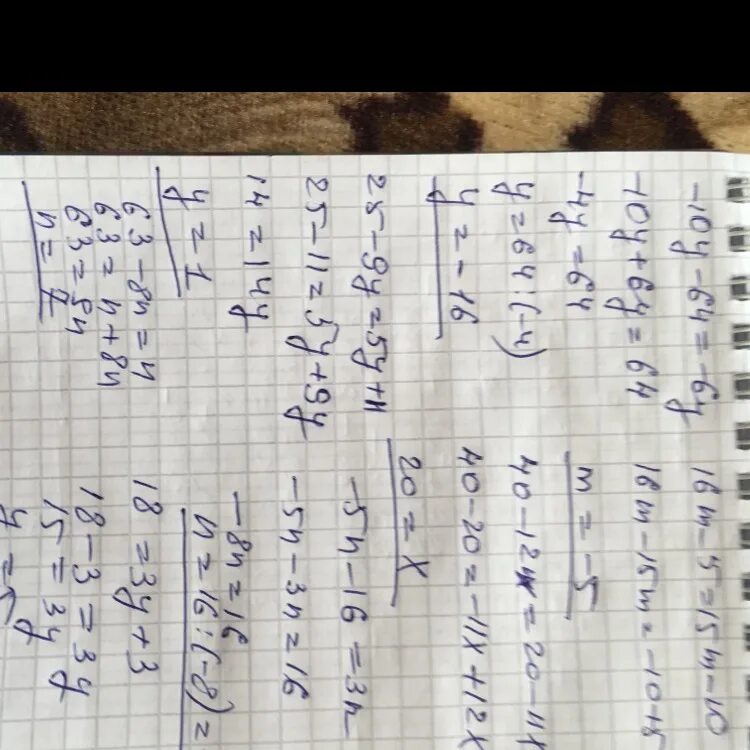 -10y-64=-6y
-10y+6y=64
-4y=64
y=64:(-4)
y=-16
25-9y=5y+11
25-11=5y+9y
14=14y
y=1
63-8n=n
63=n+8n
63=9n
n=7
16m-5=15m-10
16m-15m=-10+5
m=-5
40-12x=20-11x
40-20=-11x+12x
20=x
-5n-16=3n
-5n-3n=16
-8n=16
n=16:(-8)=
18=3y+3
18-3=3y
15=3y
y=5